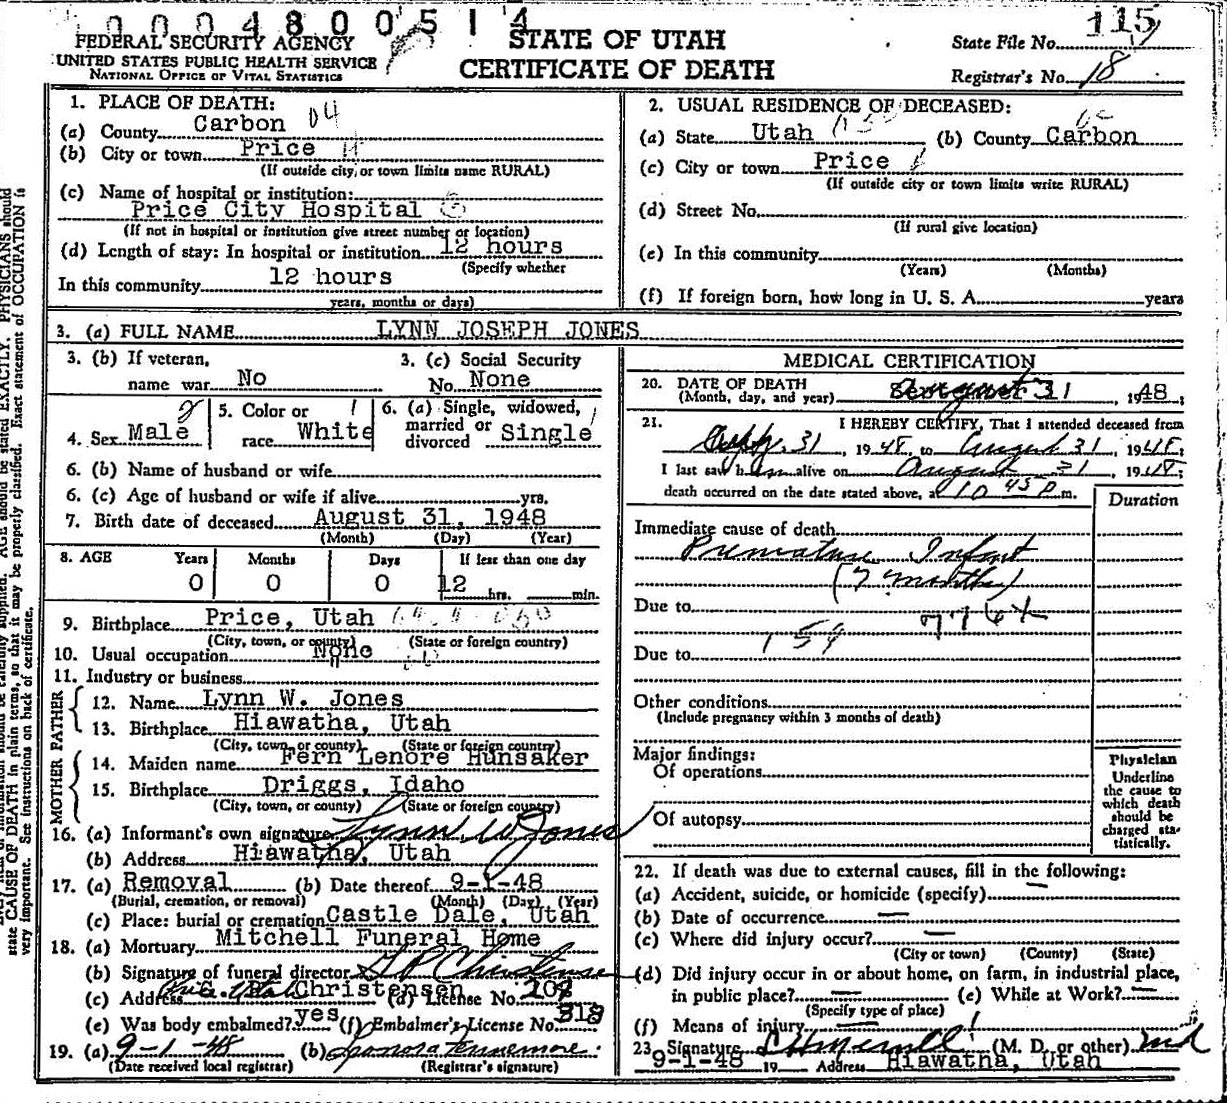 0004800514
115
FEDERAL SECURITY AGENCY
UNITED STATES PUBLIC HEALTH SERVICE
NATIONAL OFFICE OF VITAL STATISTICS
STATE OF UTAH
CERTIFICATE OF DEATH
State File No.
Registrar's No. 18
1. PLACE OF DEATH:
(a) County Carbon 04
(b) City or town Price
(If outside city or town limits name RURAL)
(c) Name of hospital or institution:
Price City Hospital
(If not in hospital or institution give street number or location)
(d) Length of stay: In hospital or institution 12 hours
(Specify whether
In this community 12 hours
years, months or days)
2. USUAL RESIDENCE OF DECEASED:
(a) State Utah (b) County Carbon
(c) City or town Price
(If outside city or town limits write RURAL)
(d) Street No.
(If rural give location)
(e) In this community
(Years) (Months)
(f) If foreign born, how long in U. S. A. years
3. (a) FULL NAME LYNN JOSEPH JONES
3. (b) If veteran,
name war No
3. (c) Social Security
No. None
4. Sex Male
5. Color or
race White
6. (a) Single, widowed,
married or
divorced Single
6. (b) Name of husband or wife
6. (c) Age of husband or wife if alive yrs.
7. Birth date of deceased August 31, 1948
(Month) (Day) (Year)
8. AGE Years Months Days If less than one day
0 0 0 12 hrs. min.
9. Birthplace Price, Utah
(City, town, or county) (State or foreign country)
10. Usual occupation None
11. Industry or business
FATHER
12. Name Lynn W. Jones
13. Birthplace Hiawatha, Utah
(City, town, or county) (State or foreign country)
MOTHER
14. Maiden name Fern Lenore Hunsaker
15. Birthplace Driggs, Idaho
(City, town, or county) (State or foreign country)
16. (a) Informant's own signature Lynn W Jones
(b) Address Hiawatha, Utah
17. (a) Removal (b) Date thereof 9-1-48
(Burial, cremation, or removal) (Month) (Day) (Year)
(c) Place: burial or cremation Castle Dale, Utah
18. (a) Mortuary Mitchell Funeral Home
(b) Signature of funeral director
(c) Address Price, Utah Christensen (d) License No.
(e) Was body embalmed? yes (f) Embalmer's License No. 318
19. (a) 9-1-48 (b) Leonora Fennemore
(Date received local registrar) (Registrar's signature)
MEDICAL CERTIFICATION
20. DATE OF DEATH
(Month, day, and year) August 31, 1948;
21. I HEREBY CERTIFY, That I attended deceased from
31, 1948, to August 31, 1948;
I last saw him alive on August 31, 1948;
death occurred on the date stated above, at 10 45 p m.
Duration
Immediate cause of death
Premature Infant
(7 months)
Due to 776X
159
Due to
Other conditions
(Include pregnancy within 3 months of death)
Major findings:
Of operations
Of autopsy
Physician
Underline
the cause to
which death
should be
charged sta-
tistically.
22. If death was due to external causes, fill in the following:
(a) Accident, suicide, or homicide (specify) —
(b) Date of occurrence —
(c) Where did injury occur? —
(City or town) (County) (State)
(d) Did injury occur in or about home, on farm, in industrial place,
in public place? — (e) While at Work? —
(Specify type of place)
(f) Means of injury —
23. Signature (M. D. or other) md
9-1-48 19 Address Hiawatha, Utah
AGE should be stated EXACTLY. PHYSICIANS should
state CAUSE OF DEATH in plain terms, so that it may be properly classified. Exact statement of OCCUPATION is
very important. See instructions on back of certificate.